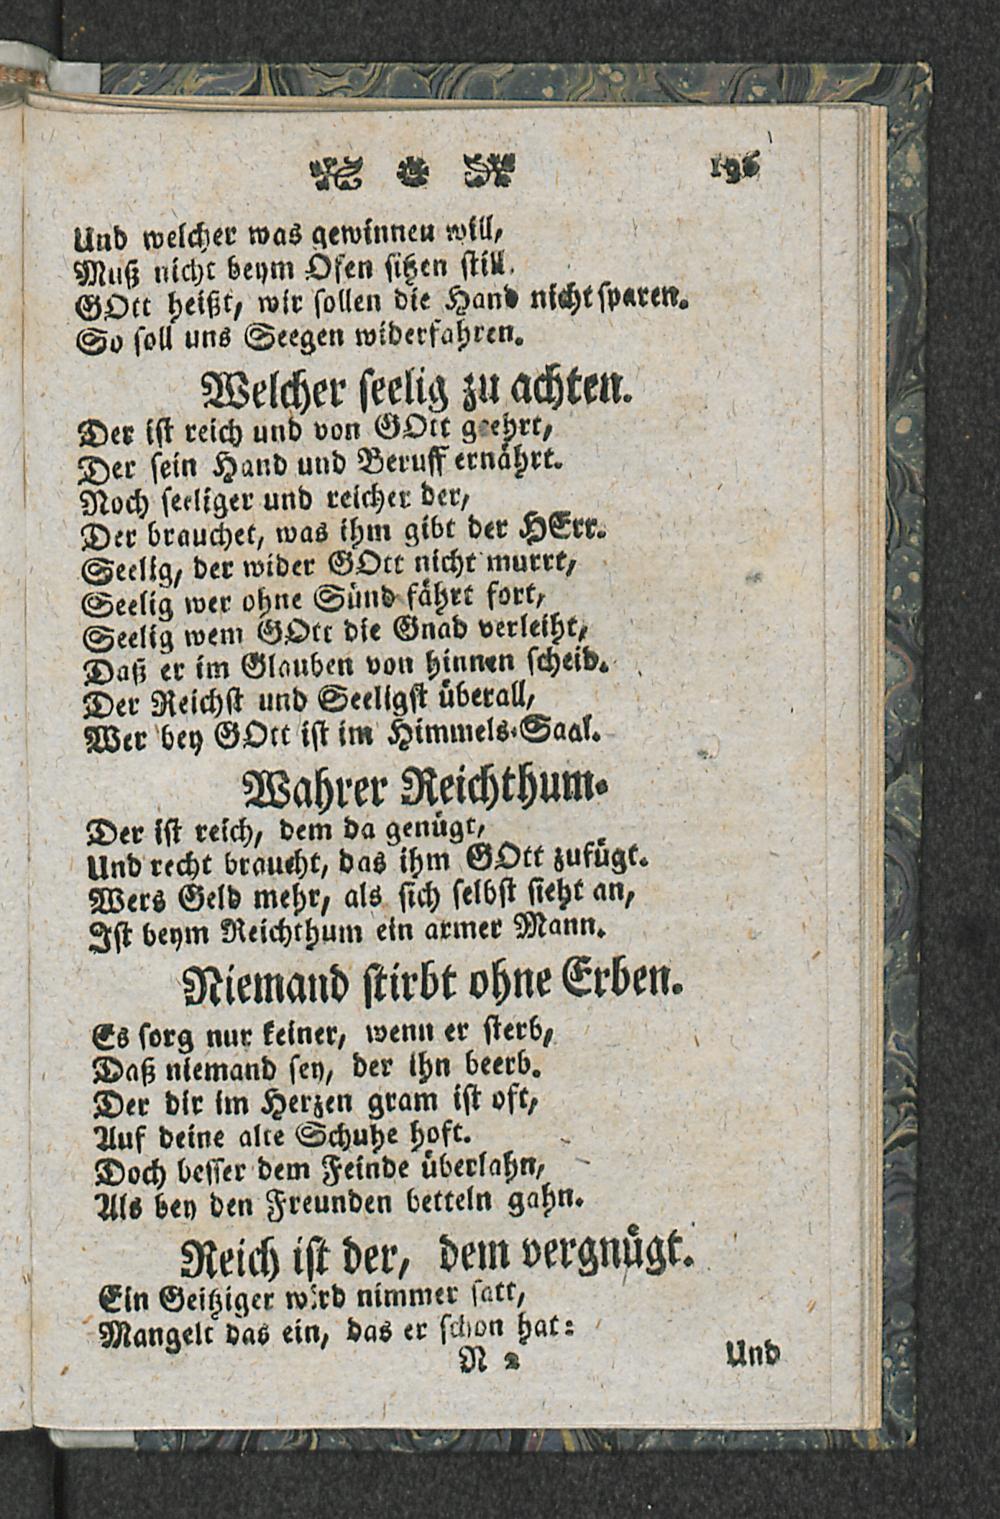 196
Und welcher was gewinnen will,
Muß nicht beym Ofen sitzen still.
GOtt heißt, wir sollen die Hand nicht sparen.
So soll uns Seegen widerfahren.
Welcher seelig zu achten.
Der ist reich und von GOtt geehrt,
Der sein Hand und Beruff ernåhrt.
Noch seeliger und reicher der,
Der brauchet, was ihm gibt der HErr.
Seelig, der wider GOtt nicht murrt,
Seelig wer ohne Sünd fåhrt fort,
Seelig wem GOtt die Gnad verleiht,
Daß er im Glauben von hinnen scheid.
Der Reichst und Seeligst überall,
Wer bey GOtt ist im Himmels-Saal.
Wahrer Reichthum.
Der ist reich, dem da genügt,
Und recht braucht, das ihm GOtt zufügt.
Wers Geld mehr, als sich selbst sieht an,
Ist beym Reichthum ein armer Mann.
Niemand stirbt ohne Erben.
Es sorg nur keiner, wenn er sterb,
Daß niemand sey, der ihn beerb.
Der dir im Herzen gram ist oft,
Auf deine alte Schuhe hoft.
Doch besser dem Feinde überlahn,
Als bey den Freunden betteln gahn.
Reich ist der, dem vergnügt.
Ein Geitziger wird nimmer satt,
Mangelt das ein, das er schon hat:
N 2 Und